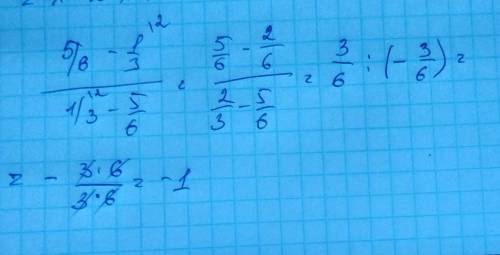 (5/6 - 1/3^{\2}) / (1/3^{\2} - 5/6) = (5/6 - 2/6) / (2/3 - 5/6) = 3/6 : (-3/6) =
= - (3·6)/(3·6) = -1